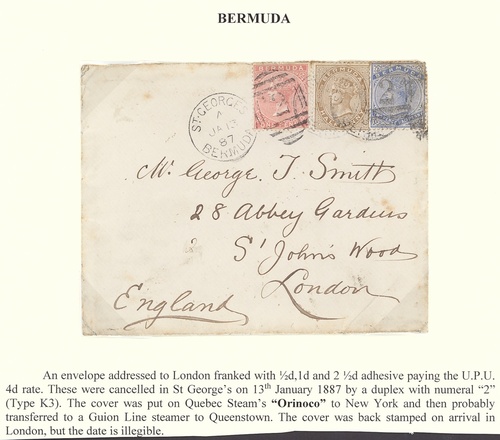 BERMUDA
BERMUDA
BERMUDA
BERMUDA
ST. GEORGES
A
JA 13
87
BERMUDA
2
Mr. George. T. Smith
28 Abbey Gardens
St John's Wood
London
England
An envelope addressed to London franked with ½d,1d and 2 ½d adhesive paying the U.P.U.
4d rate. These were cancelled in St George's on 13th January 1887 by a duplex with numeral "2"
(Type K3). The cover was put on Quebec Steam's "Orinoco" to New York and then probably
transferred to a Guion Line steamer to Queenstown. The cover was back stamped on arrival in
London, but the date is illegible.